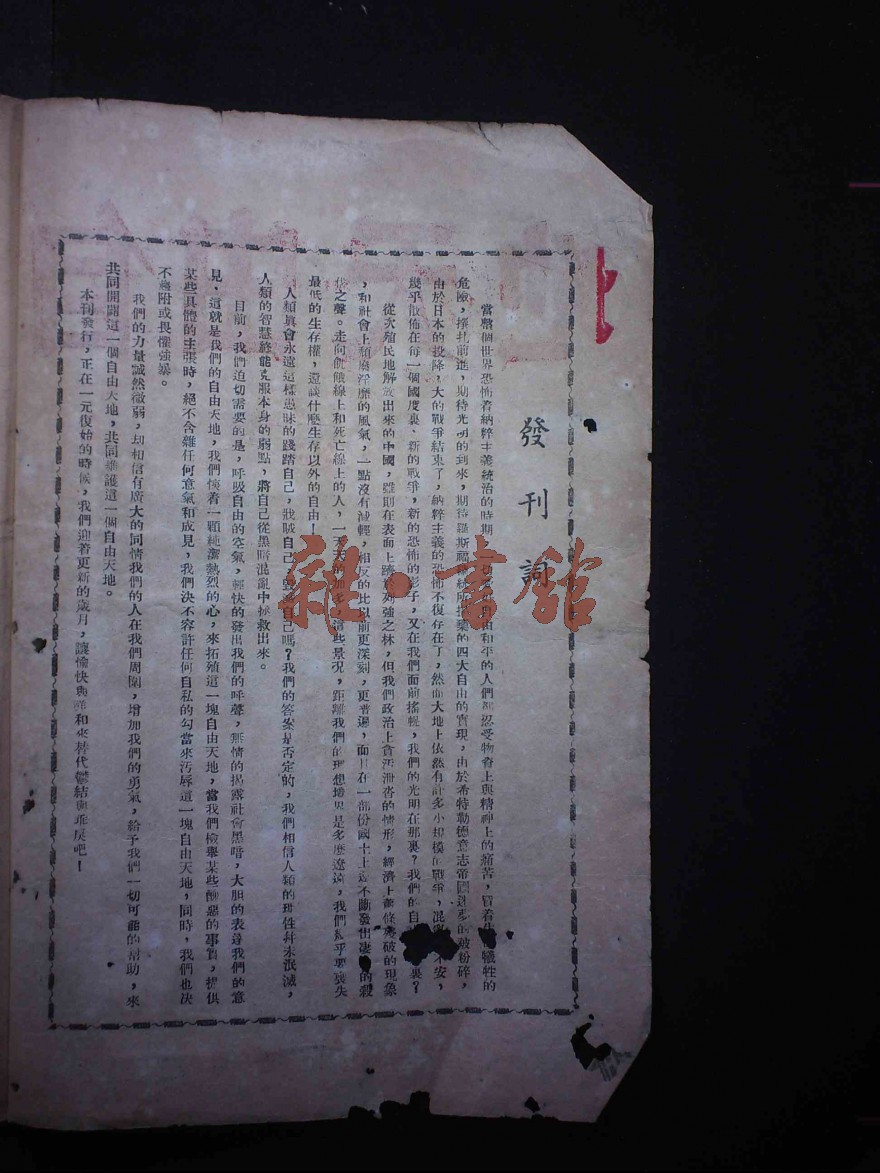 發刊詞
當整個世界恐怖着納粹主義統治的時期，自由和平的人們都忍受物資上與精神上的痛苦，冒着犧牲的
危險，撐扎前進，期待光明的到來，期待羅斯福總統所提的四大自由的實現，由於希特勒德意志帝國的被粉碎，
由於日本的投降，大的戰爭結束了，納粹主義的恐怖不復存在了，然而大地上依然有許多小規模的戰爭，混不安，
幾乎散佈在每一個國度裏，新的戰爭，新的恐怖的影子，又在我們面前搖幌，我們的光明在那裏？我們的自裏？
從次殖民地解放出來的中國，雖則在表面上躋於列強之林，但我們政治上貪汚泄沓的情形，經濟上蕭條殘破的現象
，和社會上頹廢淫靡的風氣，一點沒有減輕，相反的比以前更深刻，更普遍，而且在一部份國土上還不斷發出凄的殺
伐之聲。走向飢餓線上和死亡線上的人，一天天的加多，這些景况，距離我們的理想境界是多麽遼遠，我們幾乎要喪失
最低的生存權，還談什麽生存以外的自由！
人類眞會永遠這樣愚昧的踐踏自己，戕賊自己，毀滅自己嗎？我們的答案是否定的，我們相信人類的理性幷未泯滅，
人類的智慧終能克服本身的弱點，將自己從黑暗混亂中拯救出來。
目前，我們迫切需要的是，呼吸自由的空氣，輕快的發出我們的呼聲，無情的揭露社會黑暗，大胆的表達我們的意
見，這就是我們的自由天地，我們懷着一顆純潔熱烈的心，來拓殖這一塊自由天地，當我們檢舉某些醜惡的事實，提供
某些具體的主張時，絕不含雜任何意氣和成見，我們決不容許任何自私的勾當來汚辱這一塊自由天地，同時，我們也決
不趨附或畏懼強暴。
我們的力量誠然微弱，却相信有廣大的同情我們的人在我們周圍，增加我們的勇氣，給予我們一切可能的幫助，來
共同開闢這一個自由天地，共同維護這一個自由天地。
本刊發行，正在一元復始的時候，我們迎着更新的歲月，讓愉快與祥和來替代鬱結與乖戾吧！
雜·書館